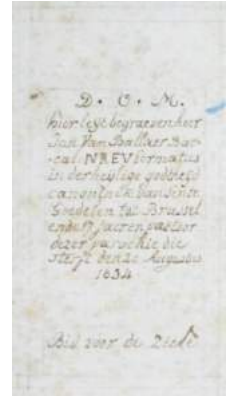 D. O. M.
hier leyt begraeven heer
Jan Van Ballaer Bac-
cal. NREV formatus
in der heylige godtheyd
canonink van Sinte
Goedelen tot Brussel
ende jaeren pastoor
dezer parochie die
sterft den 20 Augustus
1634
Bid voor de Ziele